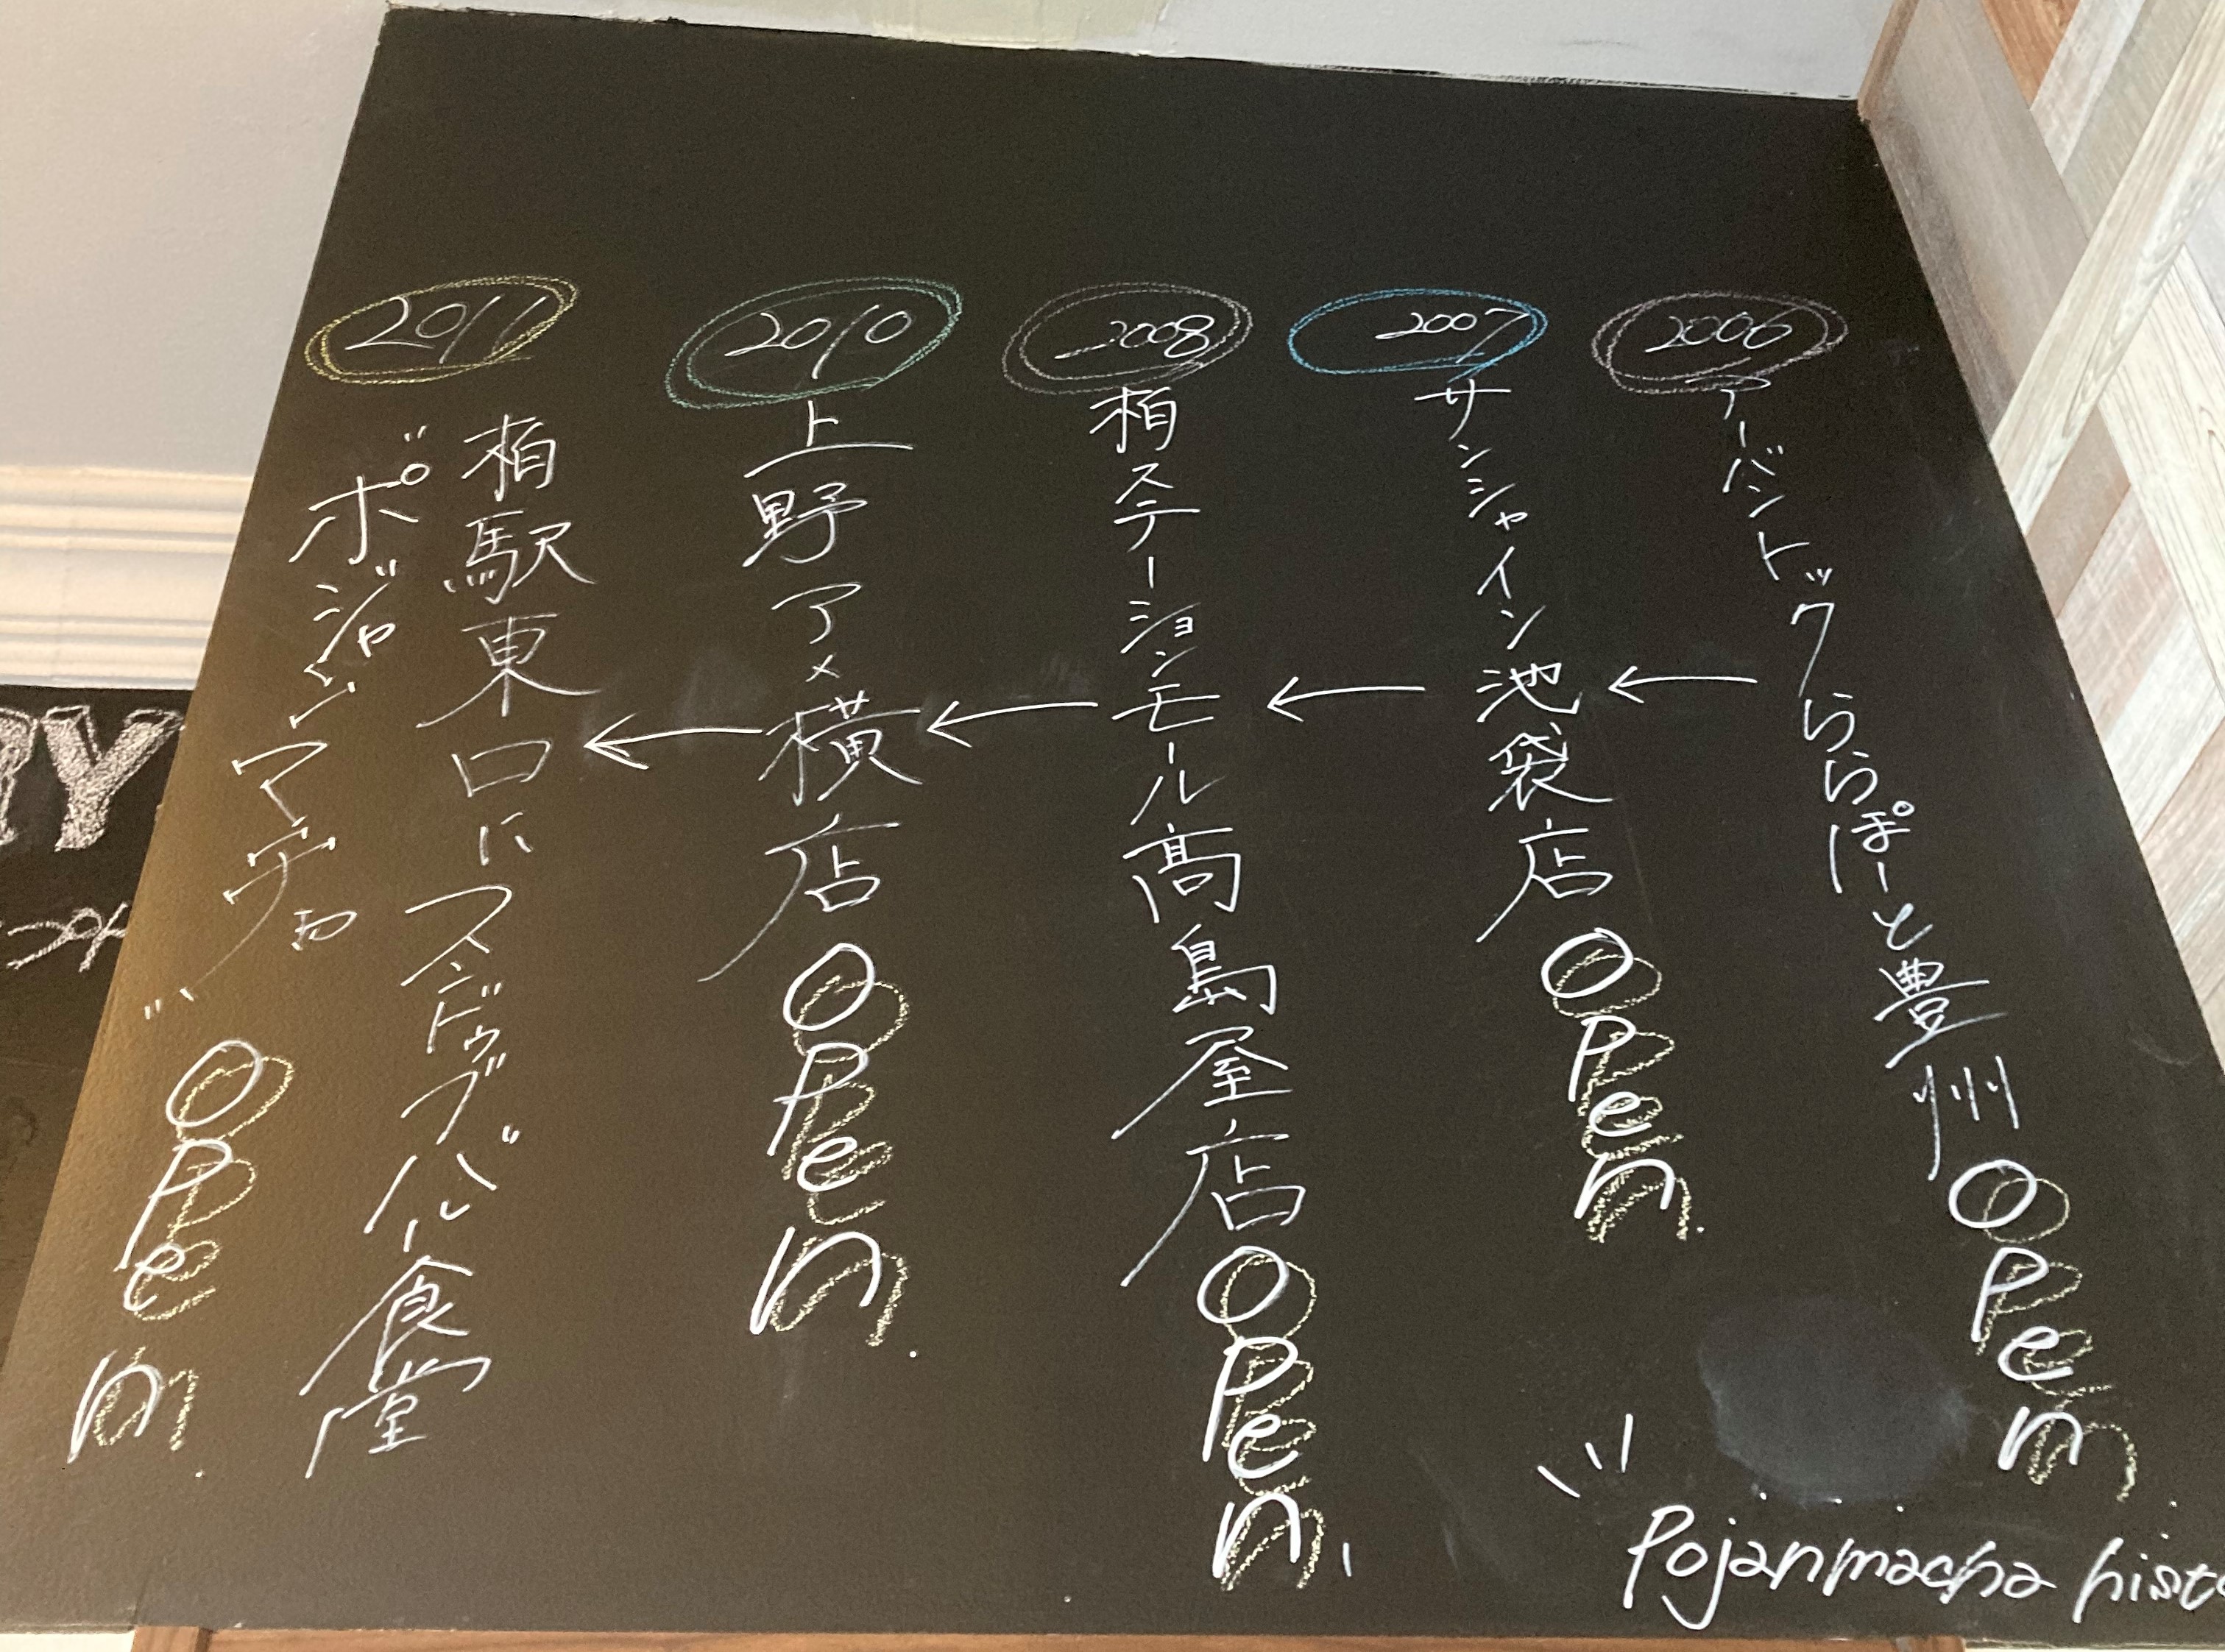 2006
アーバンドックららぽーと豊州
Open.
2007
サンシャイン池袋店
Open.
2008
柏ステーションモール髙島屋店
Open.
2010
上野アメ横店
Open.
2011
柏駅東口にスンドゥブバル食堂
"ポジャンマチャ"
Open.
Pojanmacha
RY